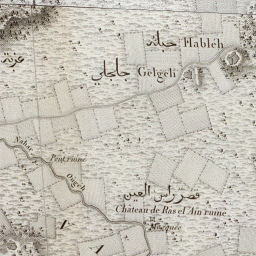 حبله Hableh
جلجلي Gelgeli
Nahar
Pont ruiné
Ougeh
قصر راس العين
Château de Ras el Aïn ruiné
Mosquée